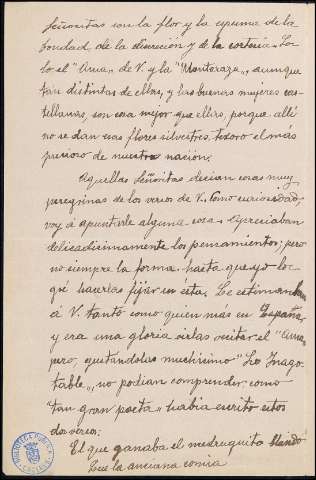 señoritas son la flor y la espuma de la
bondad, de la discreción y de la cortesía. So-
lo el "Ama" de V. y la "Montaraza", aunque
tan distintas de ellas, y las buenas mujeres cas-
tellanas, son cosa mejor que ellas, porque allí
no se dan esas flores silvestres, tesoro el más
precioso de nuestra nación.
Aquellas señoritas decían cosas muy
peregrinas de los versos de V. Como curiosidad,
voy a apuntarle alguna cosa. Apreciaban
delicadísimamente los pensamientos; pero
no siempre la forma, hasta que yo lo-
gré hacerlas fijar en ésta. Le estimaban
á V. tanto como quien más en España,
y era una gloria oirlas recitar el "Ama",
pero, gustándolas muchísimo "Lo Inago-
table", no podían comprender como
"tan gran poeta" había escrito estos
dos versos:
El que ganaba el mendruguito blando
Que la anciana comía
BIBLIOTECA PÚBLICA
CÁCERES